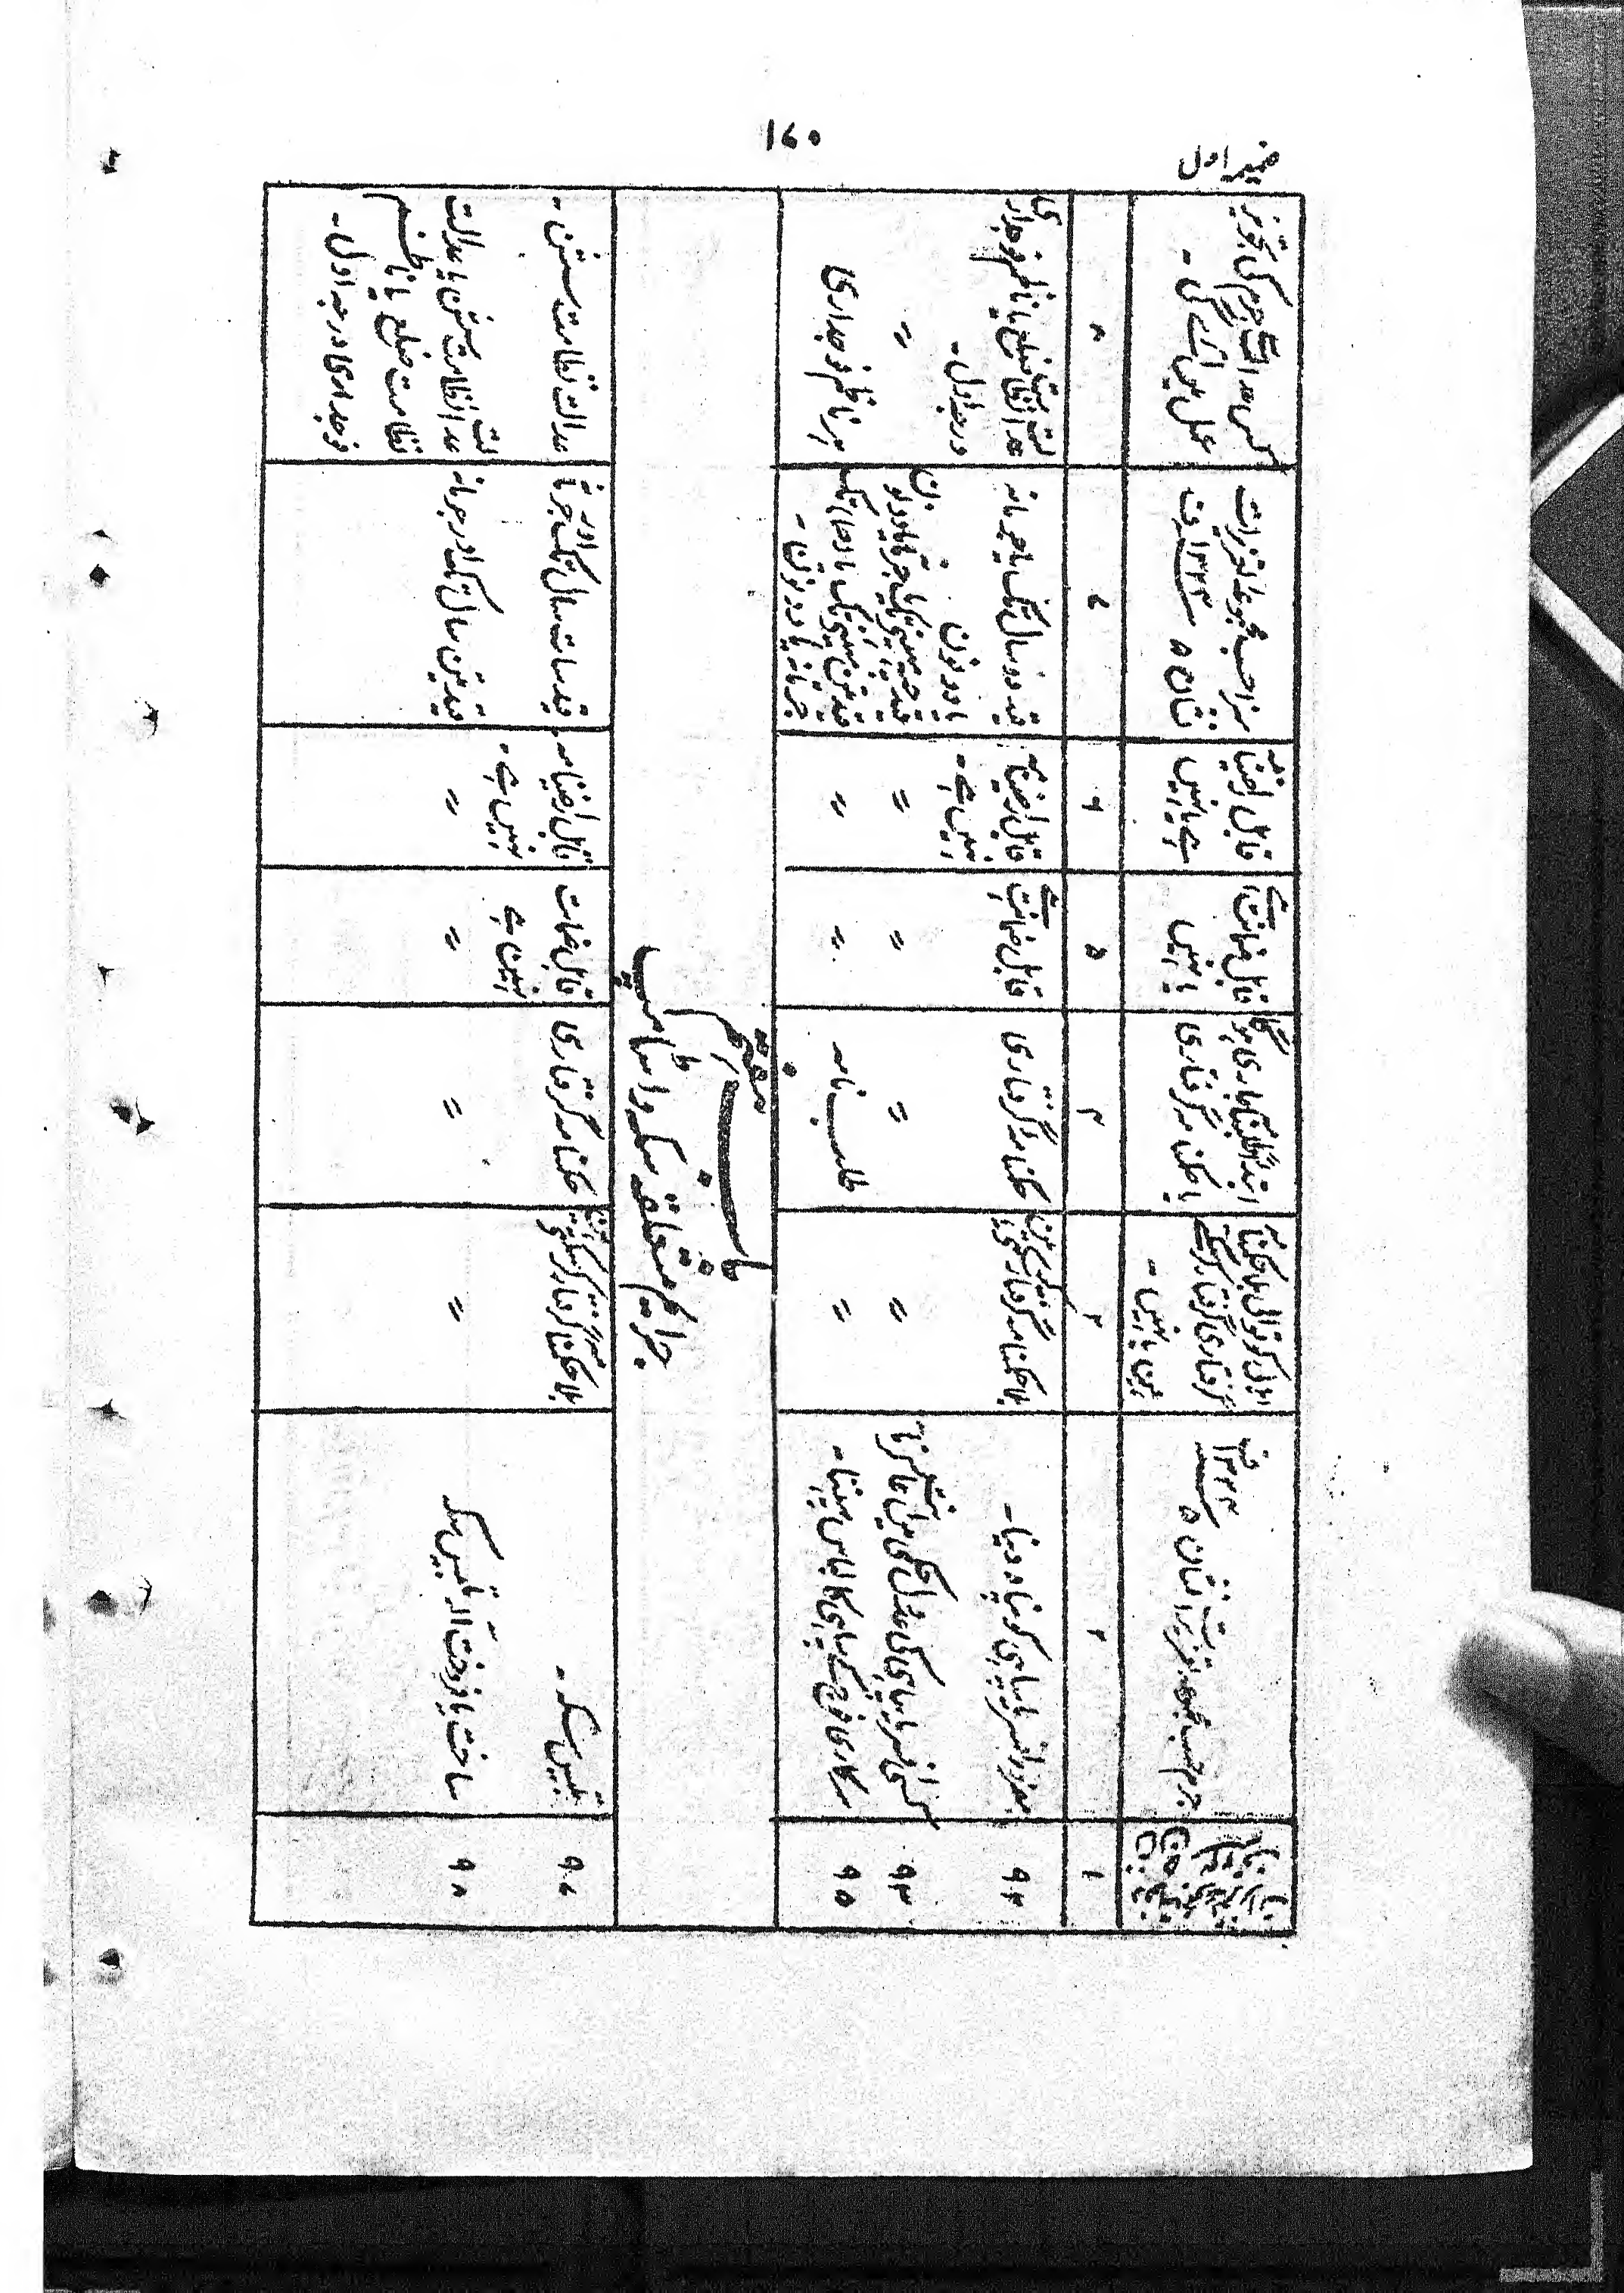 ۱۷۰
ضمیمہ اول
جرم حسب مجموعہ تعزیرات نشان ۵ سنہ ۱۳۲۴ ف
آیا اہل کوتوالی بلا حکمنامہ گرفتاری گرفتار کرسکتے ہیں یا نہیں ۔
ابتداءً طلبنامہ جاری ہوگا یا حکمنامہ گرفتاری
قابل ضمانت ہے یا نہیں
قابل راضینامہ ہے یا نہیں
سزا حسب مجموعہ تعزیرات نشان ۵
کس عدالت سے جرم کی تجویز عمل میں آئے گی ۔
۱
۲
۳
۴
۵
۶
۷
۸
۹۳
مفرور افسر یا سپاہی کو پناہ دینا ۔
بلا حکمنامہ گرفتاری
حکمنامہ گرفتاری
قابل ضمانت ہے
قابل راضینامہ نہیں ہے ۔
قید دو سال تک یا جرمانہ یا دونوں
عدالت نظامت ضلع یا ناظم فوجداری درجہ اول ۔
۹۴
کسی افسر یا سپاہی کی عدول حکمی میں اعانت کرنا
〃
〃
〃
〃
قید چھ مہینے تک یا جرمانہ یا دونوں
〃
۹۵
سرکاری فوج کے سپاہی کا لباس پہننا ۔
〃
طلب نامہ
〃
〃
قید تین مہینے تک یا جرمانہ یا دونوں ۔
ہر ناظم فوجداری
باب ہفتم
جرائم متعلقہ سکہ و اسٹامپ
۹۷
تلبیس سکہ ۔
بلا حکمنامہ گرفتار کرسکتے
حکمنامہ گرفتاری
قابل ضمانت نہیں ہے
قابل راضینامہ نہیں ہے ۔
قید سات سال تک اور جرمانہ
عدالت نظامت سشن ۔
۹۸
ساخت یا فروخت آلہ تلبیس سکہ
〃
〃
〃
〃
قید تین سال تک اور جرمانہ
عدالت نظامت سشن یا عدالت نظامت ضلع یا ناظم فوجداری درجہ اول ۔